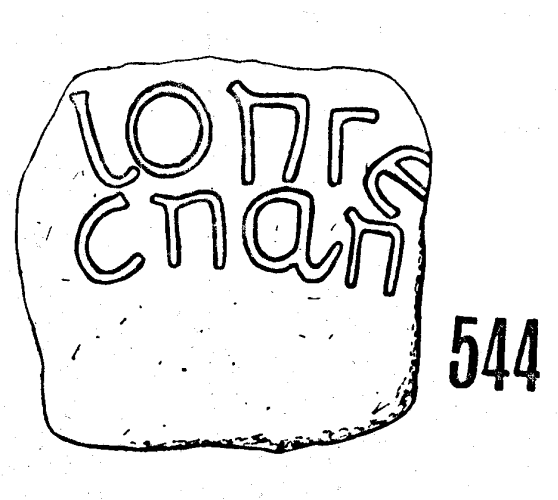 lonse
cnan
544